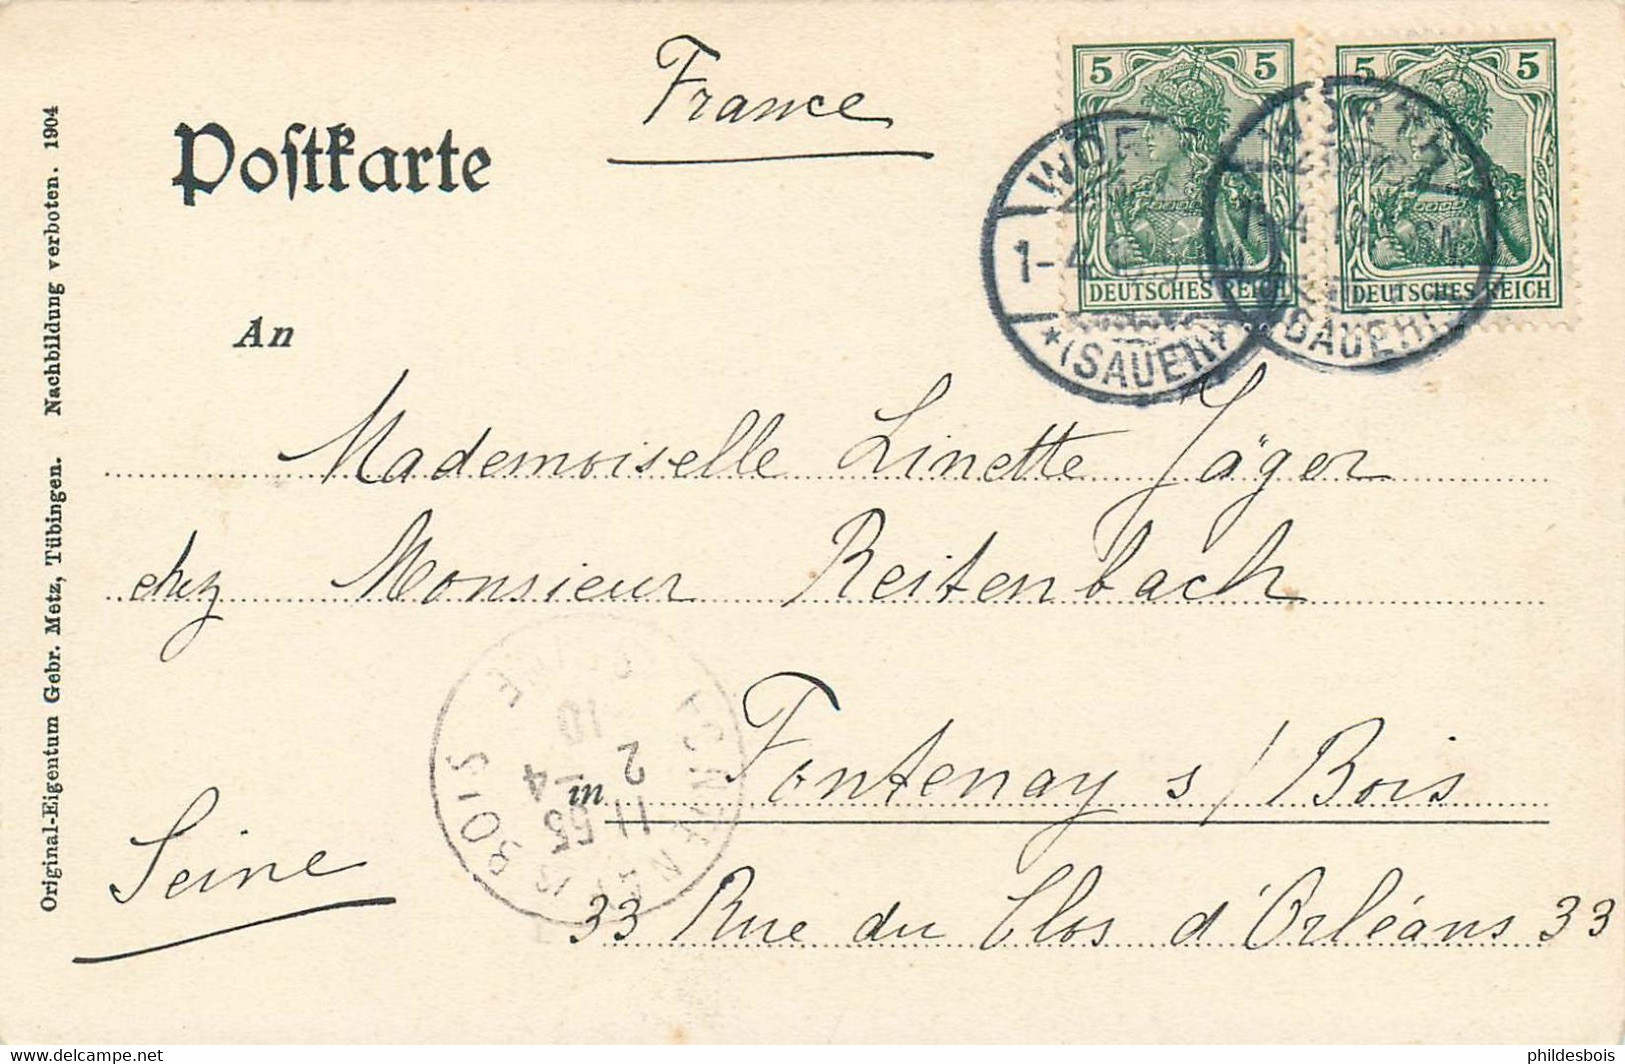 France
Postkarte
5 5
DEUTSCHES REICH
5 5
DEUTSCHES REICH
WOE
1-4
*(SAUER)*
WOERTH
(SAUER)
An
Mademoiselle Linette Jäger
chez Monsieur Reitenbach
in Fontenay s/Bois
Seine
33 Rue du Clos d'Orléans 33
FONTENAY S BOIS
SEINE
11 55
2 -4
10
Original-Eigentum Gebr. Metz, Tübingen. Nachbildung verboten. 1904
https://www.delcampe.net
phildesbois